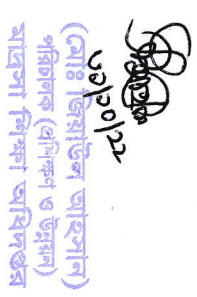 ৩১/১০/২২
(মোঃ জিয়াউল আহসান)
পরিচালক (প্রশিক্ষণ ও উন্নয়ন)
মাদ্রাসা শিক্ষা অধিদপ্তর